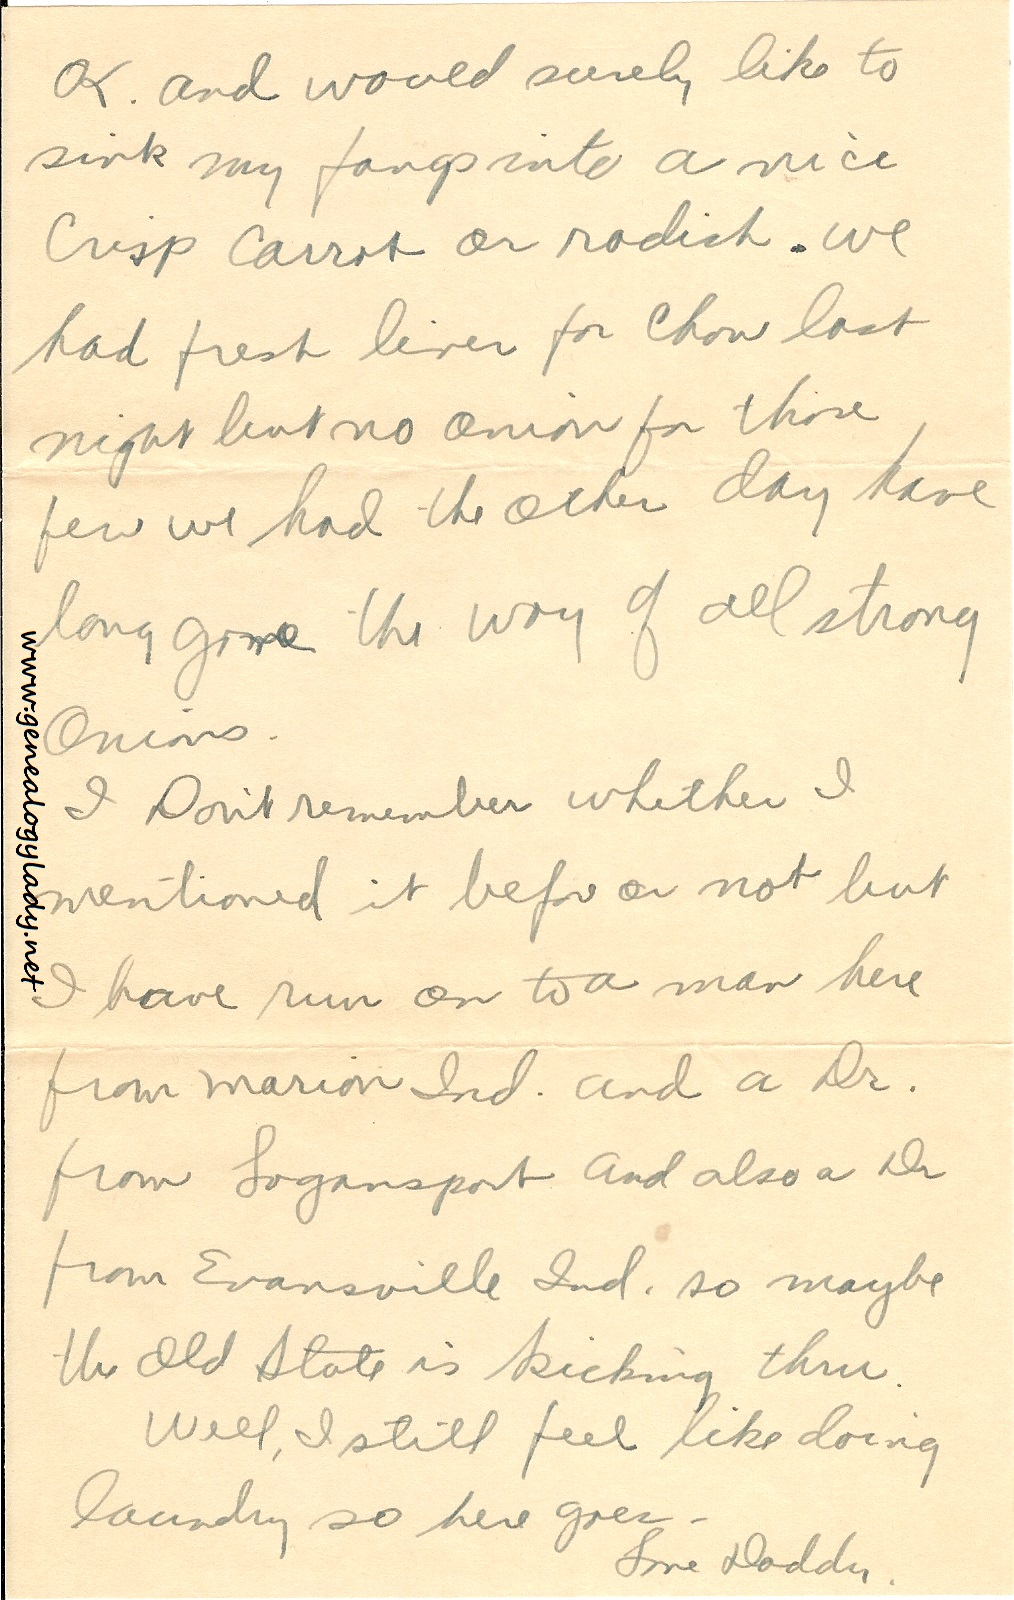 OK. and would surely like to
sink my fangs into a nice
Crisp Carrot or radish. we
had fresh liver for Chow last
night but no onion for those
few we had the other day have
long gone the way of all strong
Onions.
I Don't remember whether I
mentioned it befor or not but
I have run on to a man here
from Marion Ind. and a Dr.
from Logansport and also a Dr
from Evansville Ind. so maybe
the Old State is kicking thru.
Well, I still feel like doing
laundry so here goes -
Love Daddy.
www.genealogylady.net